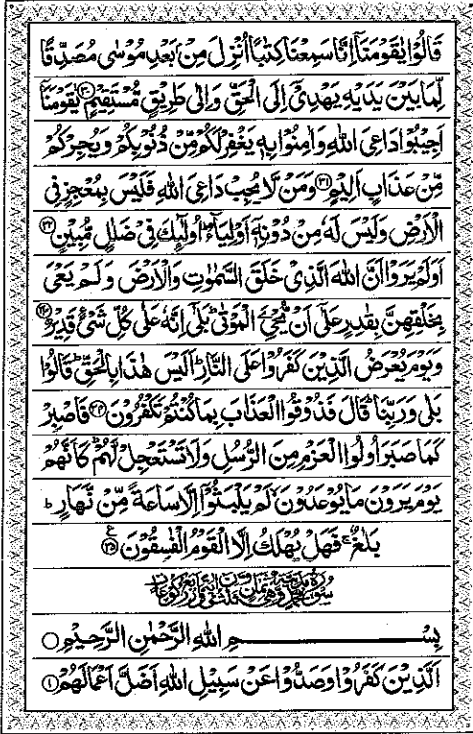 قَالُوْا يٰقَوْمَنَاۤ اِنَّا سَمِعْنَا كِتٰبًا اُنْزِلَ مِنْۢ بَعْدِ مُوْسٰى مُصَدِّقًا
لِّمَا بَيْنَ يَدَيْهِ يَهْدِيْۤ اِلَى الْحَقِّ وَاِلٰى طَرِيْقٍ مُّسْتَقِيْمٍ ﴿۳۰﴾ يٰقَوْمَنَاۤ
اَجِيْبُوْا دَاعِيَ اللّٰهِ وَاٰمِنُوْا بِهٖ يَغْفِرْ لَكُمْ مِّنْ ذُنُوْبِكُمْ وَيُجِرْكُمْ
مِّنْ عَذَابٍ اَلِيْمٍ ﴿۳۱﴾ وَمَنْ لَّا يُجِبْ دَاعِيَ اللّٰهِ فَلَيْسَ بِمُعْجِزٍ فِى
الْاَرْضِ وَلَيْسَ لَهٗ مِنْ دُوْنِهٖۤ اَوْلِيَآءُ ؕ اُولٰٓئِكَ فِيْ ضَلٰلٍ مُّبِيْنٍ ﴿۳۲﴾
اَوَلَمْ يَرَوْا اَنَّ اللّٰهَ الَّذِيْ خَلَقَ السَّمٰوٰتِ وَالْاَرْضَ وَلَمْ يَعْيَ
بِخَلْقِهِنَّ بِقٰدِرٍ عَلٰۤى اَنْ يُّحْيِۦَ الْمَوْتٰى ؕ بَلٰۤى اِنَّهٗ عَلٰى كُلِّ شَيْءٍ قَدِيْرٌ ﴿۳۳﴾
وَيَوْمَ يُعْرَضُ الَّذِيْنَ كَفَرُوْا عَلَى النَّارِ ؕ اَلَيْسَ هٰذَا بِالْحَقِّ ؕ قَالُوْا
بَلٰى وَرَبِّنَا ؕ قَالَ فَذُوْقُوا الْعَذَابَ بِمَا كُنْتُمْ تَكْفُرُوْنَ ﴿۳۴﴾ فَاصْبِرْ
كَمَا صَبَرَ اُولُوا الْعَزْمِ مِنَ الرُّسُلِ وَلَا تَسْتَعْجِلْ لَّهُمْ ؕ كَاَنَّهُمْ
يَوْمَ يَرَوْنَ مَا يُوْعَدُوْنَ ۙ لَمْ يَلْبَثُوْۤا اِلَّا سَاعَةً مِّنْ نَّهَارٍ ؕ
بَلٰغٌ ۚ فَهَلْ يُهْلَكُ اِلَّا الْقَوْمُ الْفٰسِقُوْنَ ﴿۳۵﴾ ع
بِسْمِ اللّٰهِ الرَّحْمٰنِ الرَّحِيْمِ ○
اَلَّذِيْنَ كَفَرُوْا وَصَدُّوْا عَنْ سَبِيْلِ اللّٰهِ اَضَلَّ اَعْمَالَهُمْ ﴿۱﴾